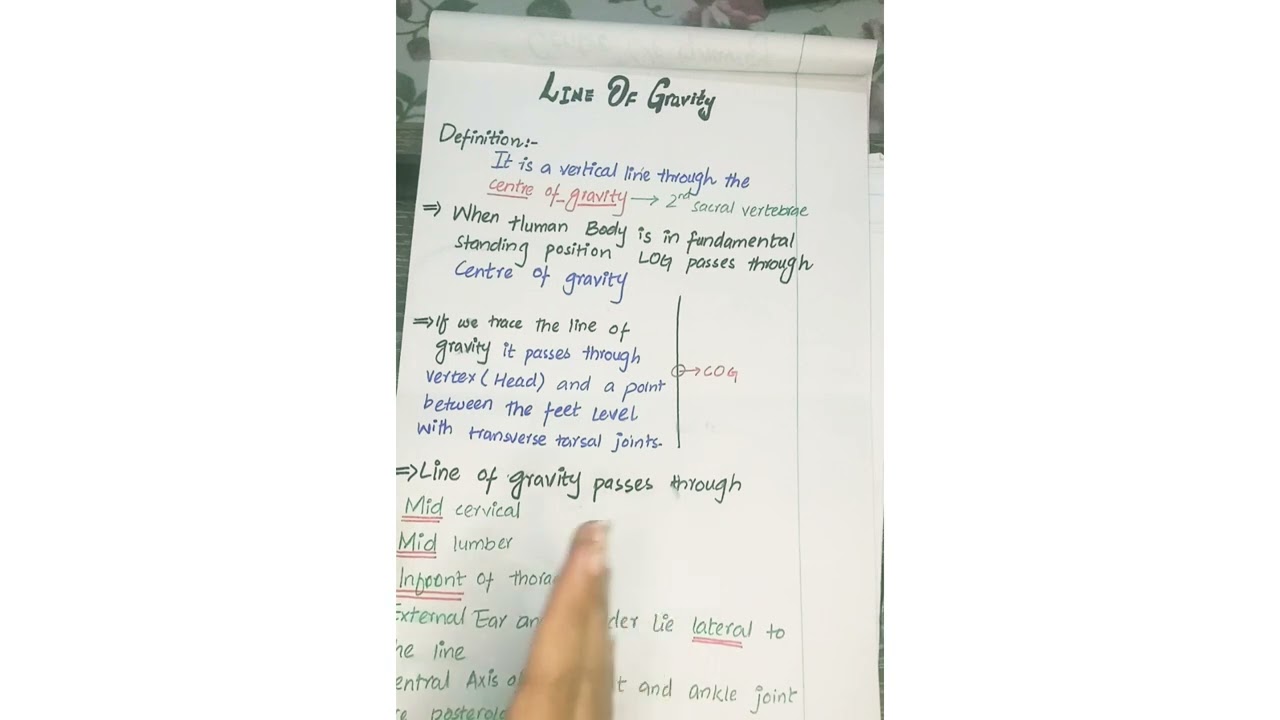 LINE OF Gravity
Definition:-
It is a vertical line through the
centre of gravity → 2nd sacral vertebrae
⇒ When Human Body is in fundamental
standing position LOG passes through
Centre of gravity
⇒ If we trace the line of
gravity it passes through
vertex (Head) and a point
between the feet level
with transverse tarsal joints.
→ COG
⇒ Line of gravity passes through
Mid cervical
Mid lumber
Infront of
External Ear lie lateral to
line
Axis and ankle joint